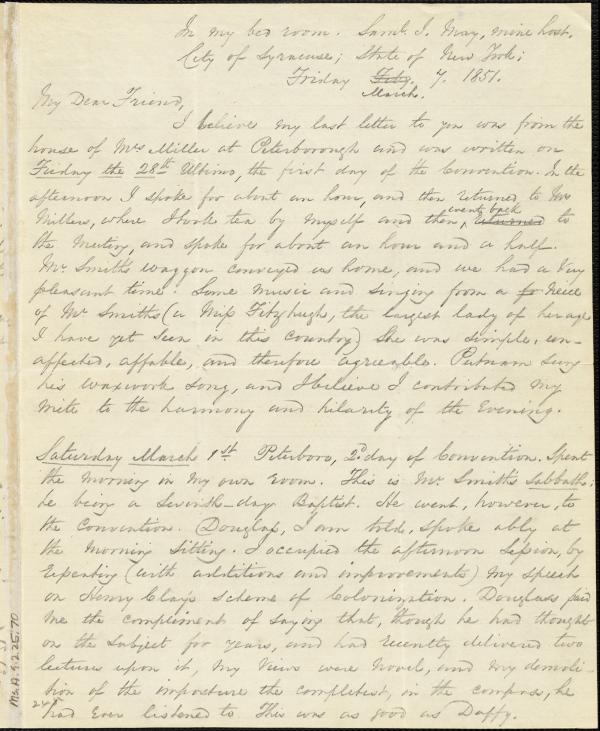 In my bed room. Saml. J. May, mine host.
City of Syracuse; State of New York;
Friday Feby. 7. 1851.
March.
My Dear Friend,
I believe my last letter to you was from the
house of Mrs Miller at Peterborough and was written on
Friday the 28th Ultimo, the first day of the Convention. In the
afternoon I spoke for about an hour, and then returned to Mrs
Millers, where I took tea by myself and then, went back returned to
the Meeting, and spoke for about an hour and a half.
Mr. Smiths waggon conveyed us home, and we had a very
pleasant time. Some music and singing from a Niece
of Mr Smiths (a Miss Fitzhugh, the largest lady of her age
I have yet seen in this Country) She was simple, un-
affected, affable, and therefore agreeable. Putnam sung
his waxwork song, and I believe I contributed my
mite to the harmony and hilarity of the Evening.
Saturday March 1st Peterboro, 2d day of Convention. Spent
the morning in my own room. This is Mr. Smiths Sabbath;
he being a Seventh-day Baptist. He went, however, to
the Convention. Douglass, I am told, spoke ably at
the Morning Sitting. I occupied the afternoon Session, by
repeating (with additions and improvements) my speech
on Henry Clays scheme of Colonization. Douglass paid
me the compliment of saying that, though he had thought
on the subject for years, and had recently delivered two
lectures upon it, my views were novel, and my demoli-
tion of the imposture the completest, in the compass, he
had ever listened to. This was as good as Daffy.
Ms.A.9.2.25.70